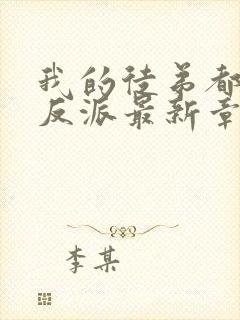 我的徒弟都
反派最新章
李某